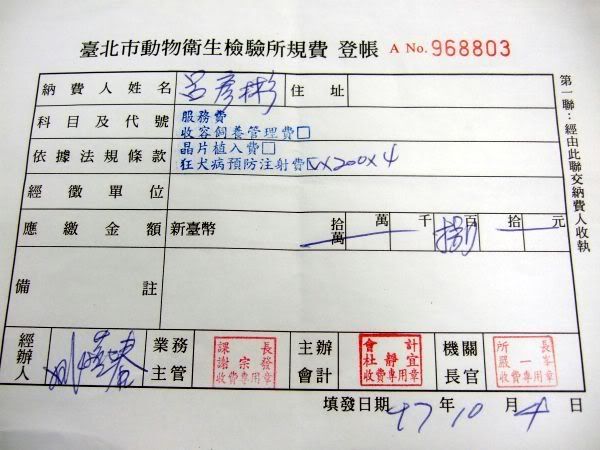 臺北市動物衛生檢驗所規費 登帳 A No. 968803
納費人姓名 呂彥彬 住址
科目及代號 服務費
收容飼養管理費□
依據法規條款 晶片植入費□
狂犬病預防注射費☑x200x4
經徵單位
應繳金額 新臺幣 拾萬 萬 千 捌百 拾 元
備註
經辦人 業務主管 課長 謝宗發 收費專用章 主辦會計 會計 杜靜宜 收費專用章 機關長官 所長 嚴一峯 收費專用章
填發日期 97年10月4日
第一聯：經由此聯交納費人收執